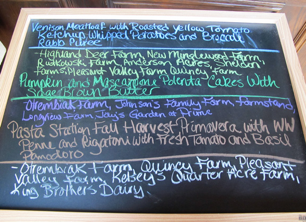 Venison Meatloaf with Roasted Yellow Tomato
Ketchup Whipped Potatoes and Broccoli
Rabb Puree
Highland Deer Farm, New Minglewood Farm,
Butkowski Farm, Anderson Acres, Sheldon
Farms, Pleasant Valley Farm Quincy Farm
Pumpkin and Mascarpone Polenta Cakes With
Sage Brown Butter
Otrembiak Farm, Johnson's Family Farm, Farmstand
Longview Farm Jay's Garden at Frame
Pasta Station Fall Harvest Primavera with WW
Penne and Rigatoni with Fresh Tomato and Basil
Pomodoro
-Otrembiak Farm, Quincy Farm, Pleasant
Valley Farm, Kelsey's Quarter Acre Farm,
King Brothers Dairy.